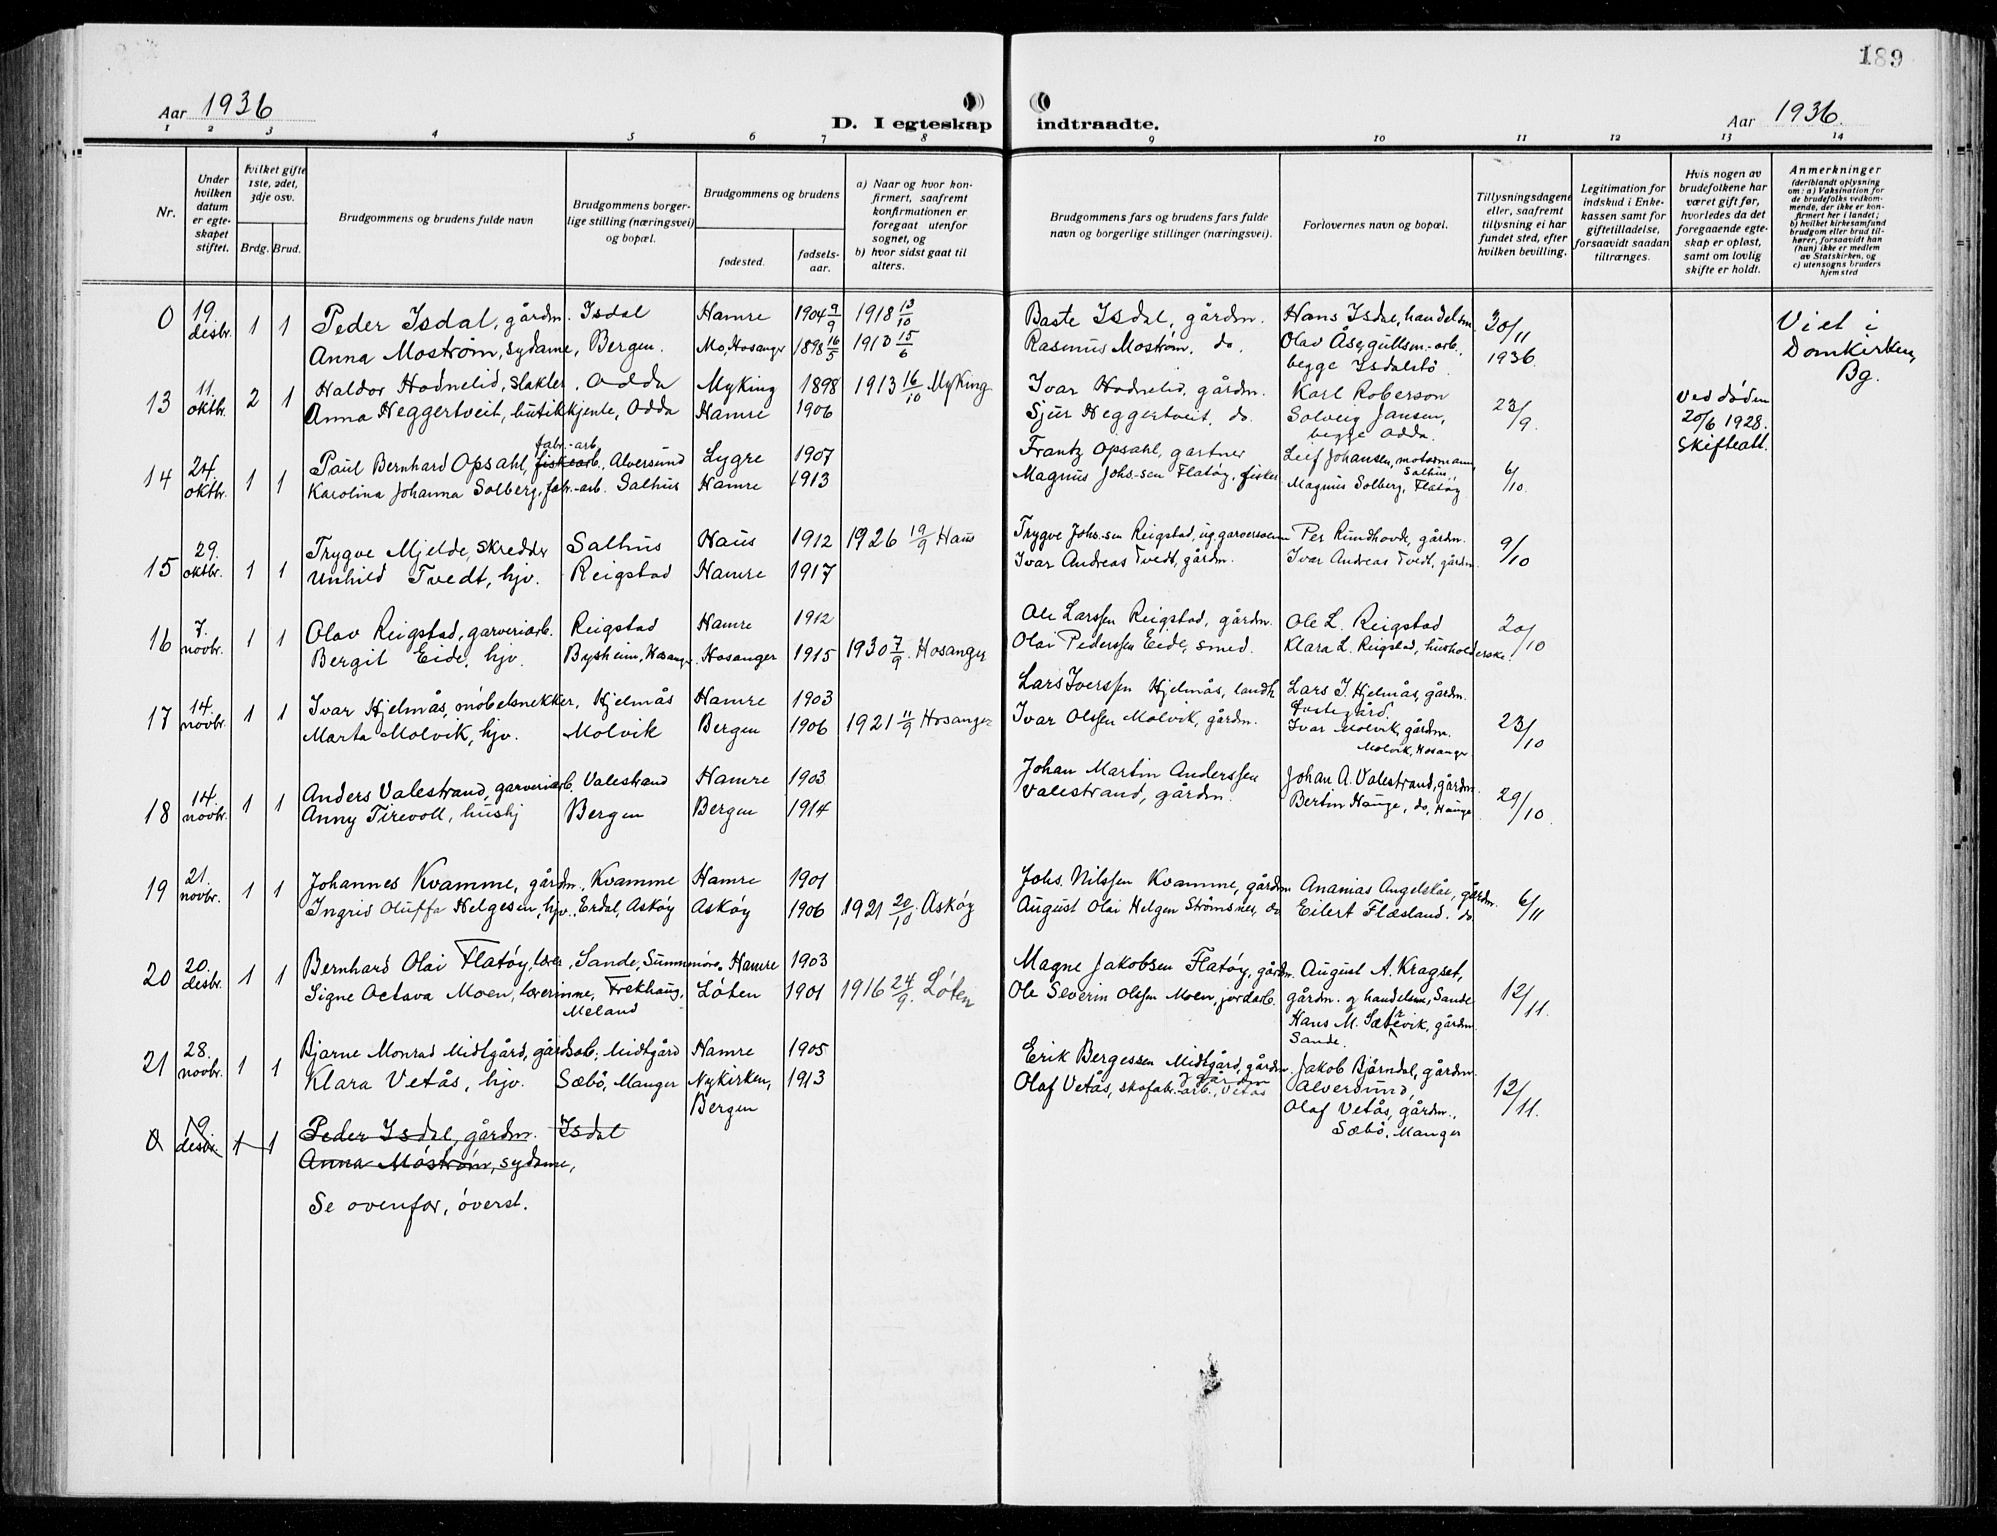 189
Aar 1936
D. I egteskap indtraadte.
Aar 1936.
1 2 3 4 5 6 7 8 9 10 11 12 13 14
Nr.
Under hvilken datum er egteskapet stiftet.
hvilket gifte 1ste, 2det, 3dje osv.
Brdg. Brud.
Brudgommens og brudens fulde navn
Brudgommens borgerlige stilling (næringsvei) og bopæl.
Brudgommens og brudens
fødested.
fødselsaar.
a) Naar og hvor konfirmert, saafremt konfirmationen er foregaat utenfor sognet, og
b) hvor sidst gaat til alters.
Brudgommens fars og brudens fars fulde navn og borgerlige stillinger (næringsvei).
Forlovernes navn og bopæl.
Tillysningsdagene eller, saafremt tillysning ei har fundet sted, efter hvilken bevilling.
Legitimation for indskud i Enkekassen samt for giftetilladelse, forsaavidt saadan tiltrænges.
Hvis nogen av brudefolkene har været gift før, hvorledes da det foregaaende egteskap er opløst, samt om lovlig skifte er holdt.
Anmerkninger
(deriblandt oplysning om: a) Vaksination for de brudefolks vedkommende, der ikke er konfirmert her i landet; b) hvilket kirkesamfund brudgom eller brud tilhører, forsaavidt han (hun) ikke er medlem av Statskirken, og c) utensogns bruders hjemsted
0 19. desbr. 1 1 Peder Isdal, gårdm. Isdal Hamre 1904 9/9 1918 13/10 Baste Isdal, gårdm. Hans Isdal, handelsm. 20/11 Viet i
Anna Mostrøm, sydame, Bergen. Mo, Hosanger 1898 16/5 1913 15/6 Rasmus Mostrøm, do. Olav Åsegullsen - arb., 1936. Domkirken,
begge Isdalstø Bg.
13 11. oktbr. 2 1 Haldor Hodnelid, slakter, Odda Myking 1898 1913 16/10 Myking Ivar Hodnelid, gårdm. Karl Roberson 23/9 ved døden
Anna Heggertveit, butikkjente, Odda Hamre 1906 Sjur Heggertveit, do. Solveig Jansen, 20/6 1928.
begge Odda. Skifteatt.
14 24. oktbr. 1 1 Paul Bernhard Opsahl, fabr.-arb. fiskearb, Alversund Lygre 1907 Frantz Opsahl, gartner Leif Johansen, motormann, Salhus 6/10
Karolina Johanna Solberg, fabr.-arb. Salhus Hamre 1913 Magnus Johs-sen Flatøy, fisker Magnus Solberg, Flatøy
15 29. oktbr. 1 1 Trygve Mjelde, skredder Salhus Haus 1912 1926 19/9 Haus Trygve Johs-sen Reigstad, Per Rundhovde, gårdm. 9/10
Unhild Tvedt, hjv. Reigstad Hamre 1917 Ivar Andreas Tvedt, gårdm. Ivar Andreas Tvedt, gårdm.
16 7. novbr. 1 1 Olav Reigstad, garveriarb. Reigstad Hamre 1912 Ole Larssen Reigstad, gårdm. Ole L. Reigstad 20/10
Bergit Eide, hjv. Bysheim, Hosanger Hosanger 1915 1930 7/9. Hosanger Olai Pederssen Eide, smed. Klara L. Reigstad, husholderske.
17 14. novbr. 1 1 Ivar Hjelmås, møbelsnekker, Hjelmås Hamre 1903 Lars Iverssen Hjelmås, landh. Lars I. Hjelmås, gårdm. 23/10
Marta Molvik, hjv. Molvik Bergen 1906 1921 11/9 Hosanger Ivar Olssen Molvik, gårdm. Ivar Molvik, gårdm.
Molvik, Hosanger
18 14. novbr. 1 1 Anders Valestrand, garveriarb, Valestrand Hamre 1903 Johan Martin Anderssen Johan A. Valestrand, gårdm. 29/10.
Anny Tirevoll, hushj Bergen Bergen 1914 Valestrand, gårdm. Bertin Hauge, do, Hauge
19 21. novbr. 1 1 Johannes Kvamme, gårdm., Kvamme Hamre 1901 Johs. Nilssen Kvamme, gårdm Ananias Angelskår, gårdm. 6/11
Ingrid Oluffa Helgesen, hjv., Erdal, Askøy Askøy 1906 1921 20/10. Askøy August Olai Helgen Strømsnes, do Eilert Flæsland. do.
20 20. desbr. 1 1 Bernhard Olai Flatøy, lærer, Sande, Sunnmøre. Hamre 1903 Magne Jakobsen Flatøy, gårdm. August A. Kragset, 12/11.
Signe Octava Moen, lærerinne, Frekhaug, Løten 1901 1916 24/9. Løten Ole Severin Olssen Moen, jordarb. gårdm. og handelsm, Sande
Meland Hans M. Sætrevik, gårdm.
Sande.
21 28. novbr. 1 1 Bjarne Monrad Midtgård, gårdsarb; Midtgård Hamre 1905 Erik Bergessen Midtgård, gårdm. Jakob Bjørndal, gårdm. 12/11.
Klara Vetås, hjv. Sæbø, Manger Nykirken, 1913 Olaf Vetås, skofabr.-arb., og gårdm Vetås Alversund,
Bergen Olaf Vetås, gårdm.,
Sæbø, Manger
0 19. desbr. 1 1 Peder Isdal, gårdm. Isdal
Anna Mostrøm, sydame,
Se ovenfor, øverst.